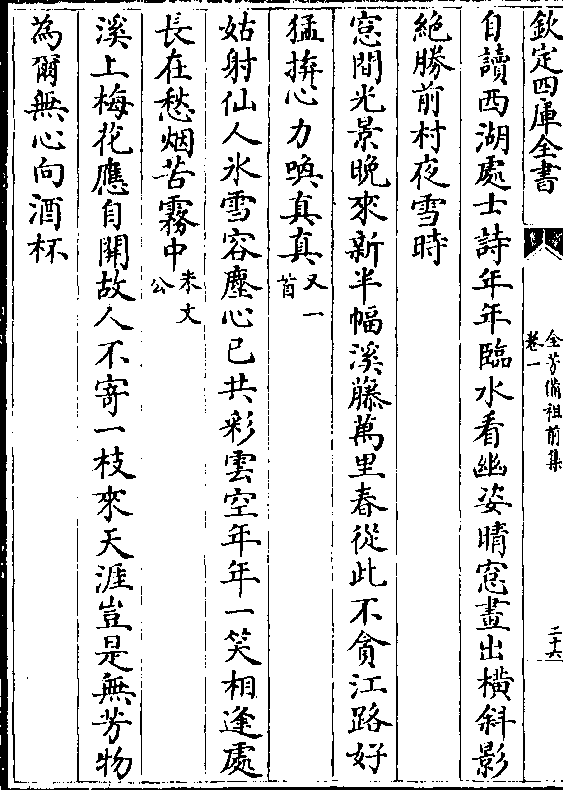 欽定四庫全書
全芳備祖前集
卷一
二十六
自讀西湖處士詩年年臨水看幽姿晴窓畫出橫斜影
絶勝前村夜雪時
窓間光景晩來新半幅溪藤萬里春從此不貪江路好
猛拚心力喚真真又一首
姑射仙人氷雪容塵心已共彩雲空年年一笑相逢處
長在愁烟苦霧中朱文公
溪上梅花應自開故人不寄一枝來天涯豈是無芳物
為爾無心向酒杯